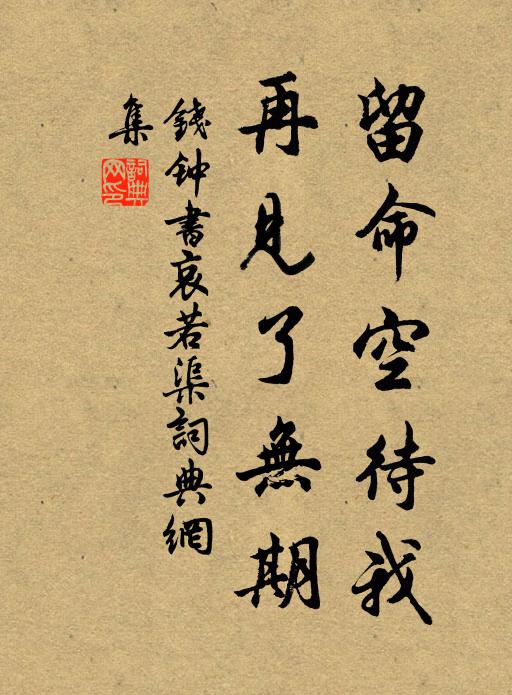 留命空待我
再見了無期
錢钟書哀若渠詞典網
集
詞典网印